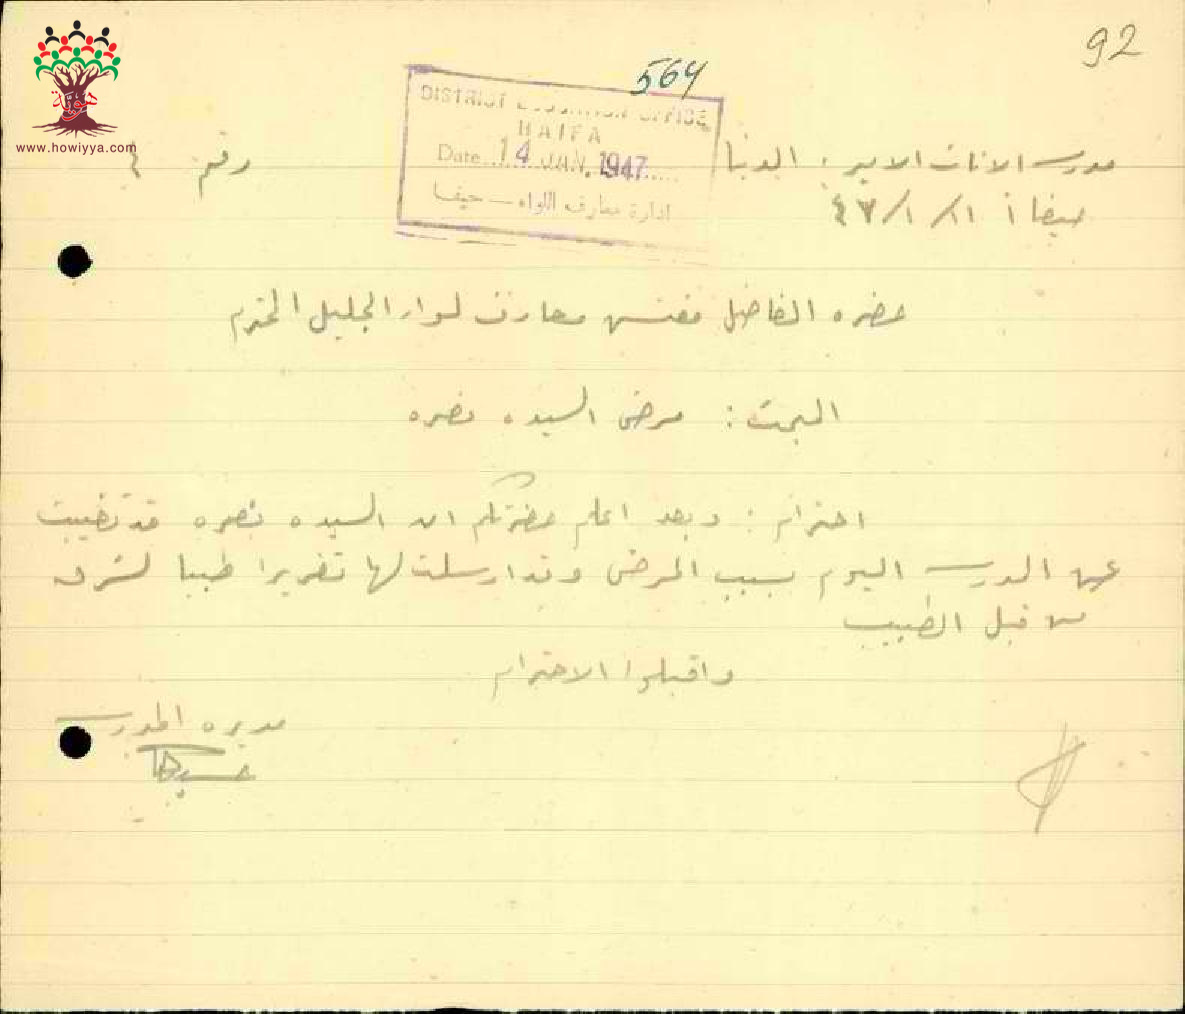 92
564
DISTRICT EDUCATION OFFICE
HAIFA
Date 14 JAN. 1947
ادارة معارف اللواء — حيفا
هوية
www.howiyya.com
مدرسة الاناث الاميرية الدنيا رقم ٤
حيفا
حضره الفاضل مفتش معارف لواء الجليل المحترم
المبحث : مرض السيده نصره
احترام : وبعد اعلم حضرتكم ان السيده نصره قد تغيبت
عن المدرسة اليوم بسبب المرض وقد ارسلت لها تقريرا طبيا
من قبل الطبيب
واقبلوا الاحترام
مديره المدرسة